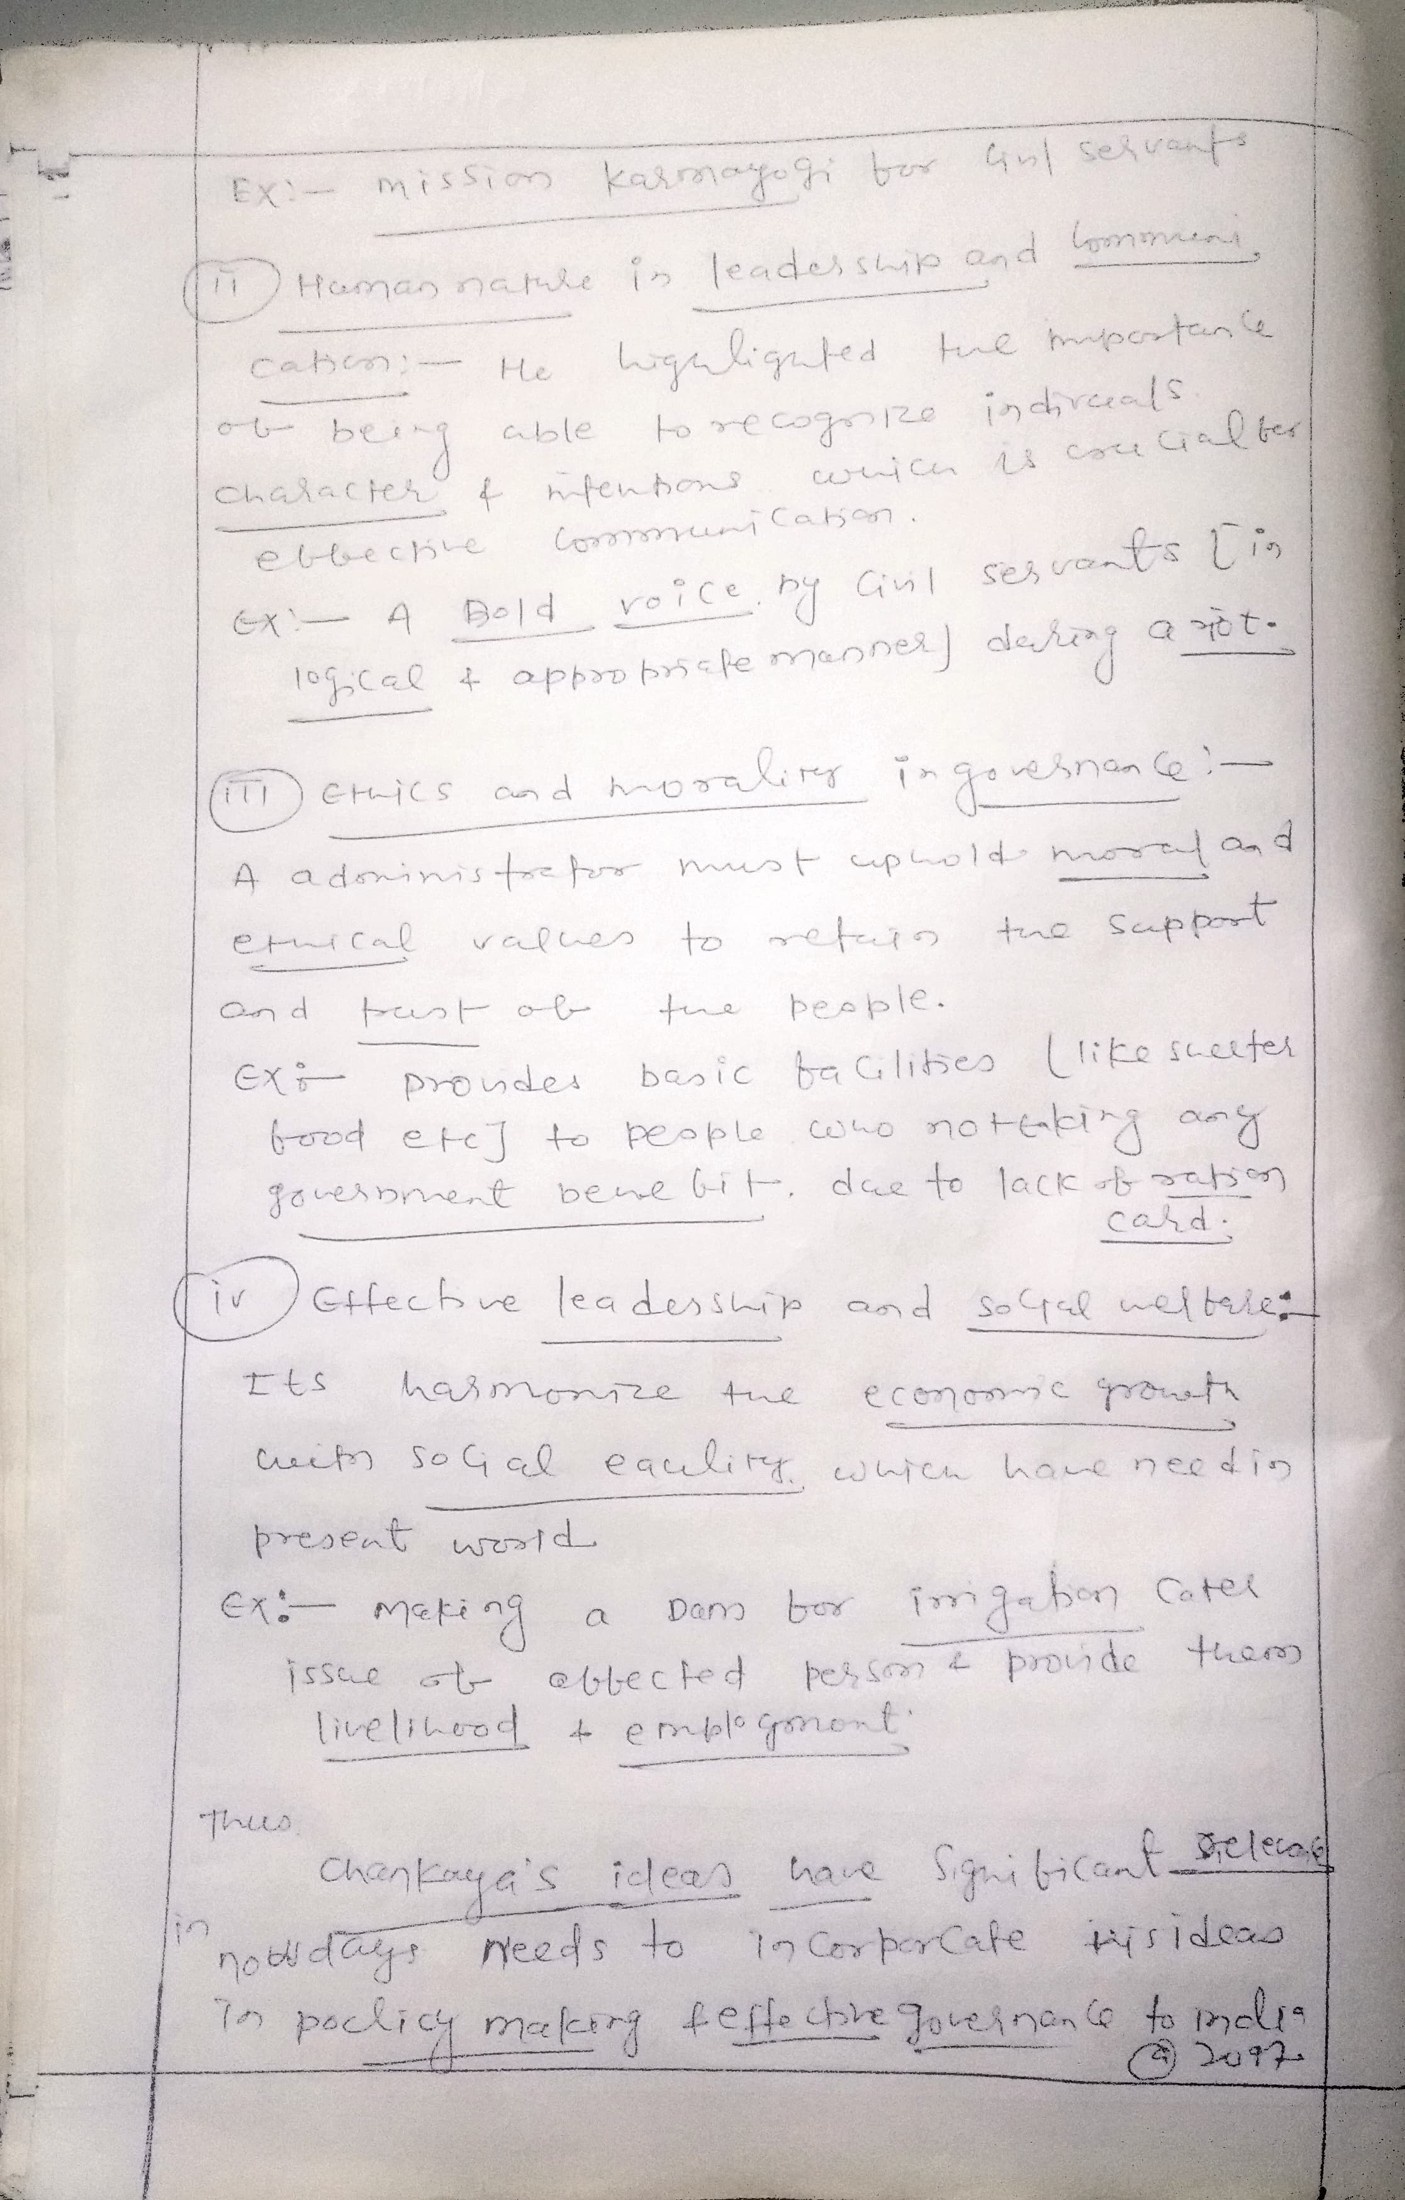 Ex:- mission karmayogi for Civil servants
(ii) Human nature in leadership and communi
cation:- He highlighted the importance
of being able to recognize indivuals
character & intentions which is crucial for
effective communication.
Ex:- A Bold voice by Civil servants [in
logical & appropriate manner] during a riot.
(iii) Ethics and morality in governance:-
A administrator must uphold moral and
ethical values to retain the support
and trust of the people.
Ex:- provides basic facilities (like shelter
food etc] to people who not taking any
government benefit. due to lack of ration
card.
(iv) Effective leadership and social welfare:-
Its harmonize the economic growth
with social equlity which have need in
present world
Ex:- Making a Dam for irrigation cater
issue of affected person & provide them
livelihood & employment.
Thus
Chankaya's ideas have significant
in
nowdays Needs to incorporate his ideas
in poclicy making & effective governance to india
@ 2047